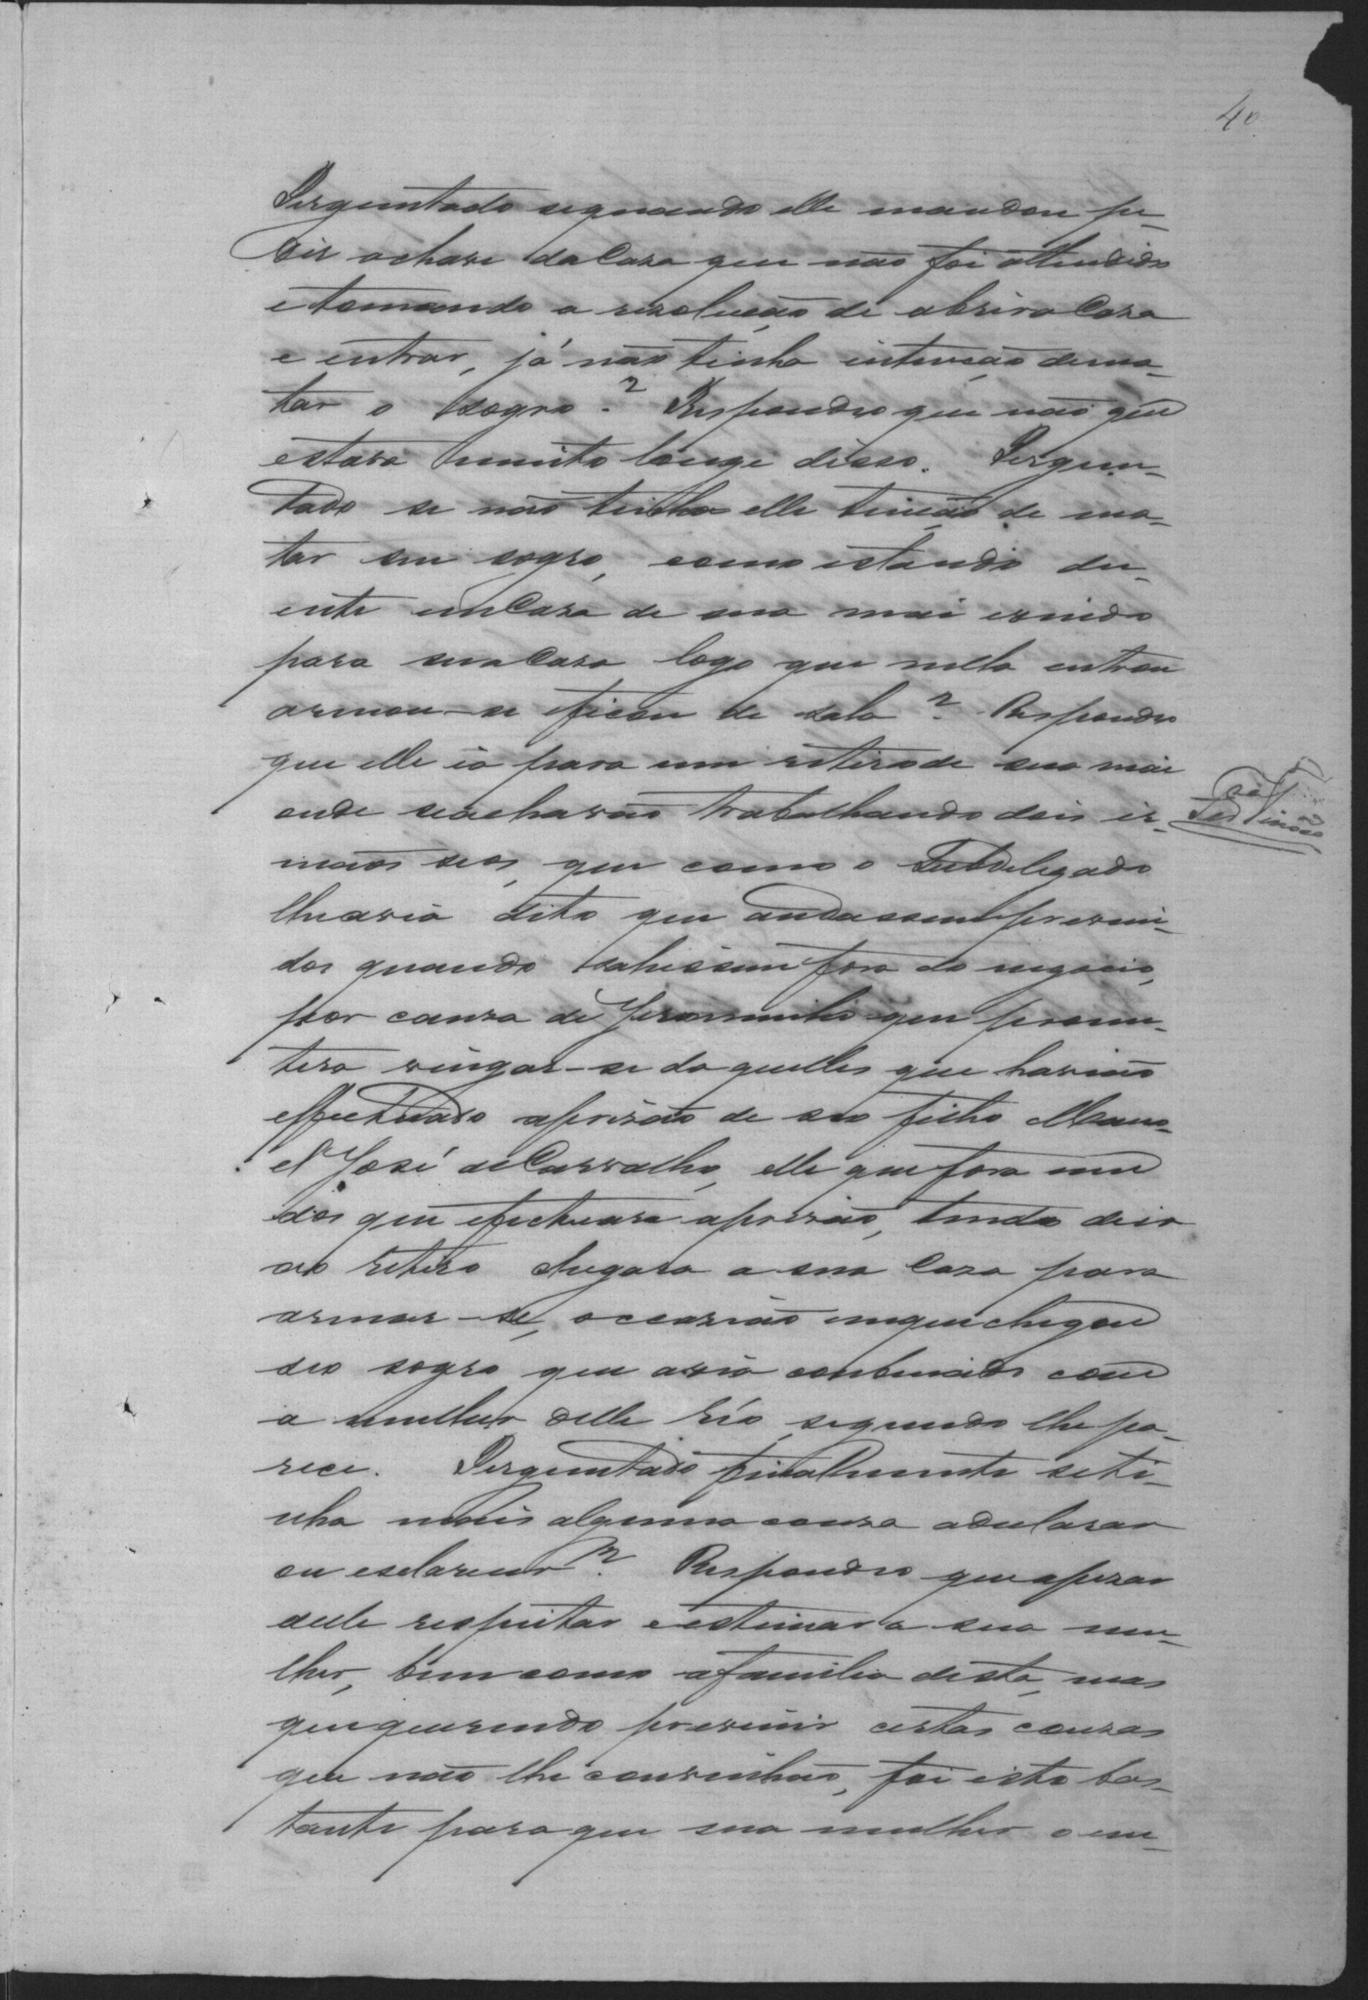 40
Perguntado seguando elle mandou pe-
dir achave da Caza que não foi attendido
e tomando a rezolução de abrir a Caza
e entrar, já não tinha intenção de ma-
tar o sogro? Respondeo que não que
estava muito longe disso. Pergun-
tado se não tinha elle tenção de ma-
tar seu sogro, como estando du-
ente em Caza de sua mai e vindo
para sua Caza logo que nella entrou
armou-se e ficou de sala? Respondeo
que elle ia para um retiro de sua mãe
onde se achavão trabalhando dois ir-
mãos seos, que como o Subdelegado
lhe avia dito que andassem preveni-
dos quando sahissem fora do negocio,
por cauza de Jeronimo que prome-
tera vingar-se daquelles que havião
effectuado aprizão de seo filho Mano-
el José de Carvalho, elle que fora um
dos que efectuara aprizão, tendo de ir
ao retiro chegara a sua Caza para
armar-se, occazião em que chegou
seo sogro que avia conbinado com
a mulher delle réo, segundo lhe pa-
rece. Perguntado finalmente se ti-
nha mais alguma couza adeclarar
ou esclarecer? Respondeo que apezar
delle respeitar e estimar a sua mu-
lher, bem como a familia desta, mas
que querendo prevenir certas couzas
que não lhe convinhão, foi isto bas-
tante para que sua mulher o em-